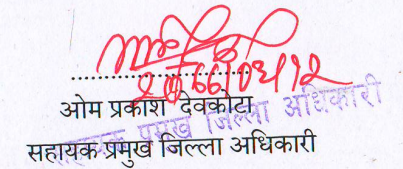 २०६६।०५।१२
ओम प्रकाश देवकोटा
सहायक प्रमुख जिल्ला अधिकारी
सहायक प्रमुख जिल्ला अधिकारी